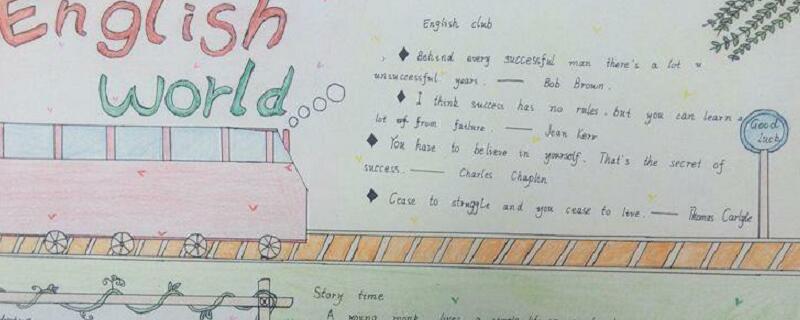 English
World
English club
Behind every successful man there's a lot u
unsuccessful years. —— Bob Brown.
I think success has no rules, but you can learn a
lot of from failure. —— Jean Kerr
You have to believe in yourself. That's the secret of
success. —— Charles Chaplin
Cease to struggle and you cease to live. —— Thomas Carlyle
Good
luck
Story time
A young monk lives a simple life